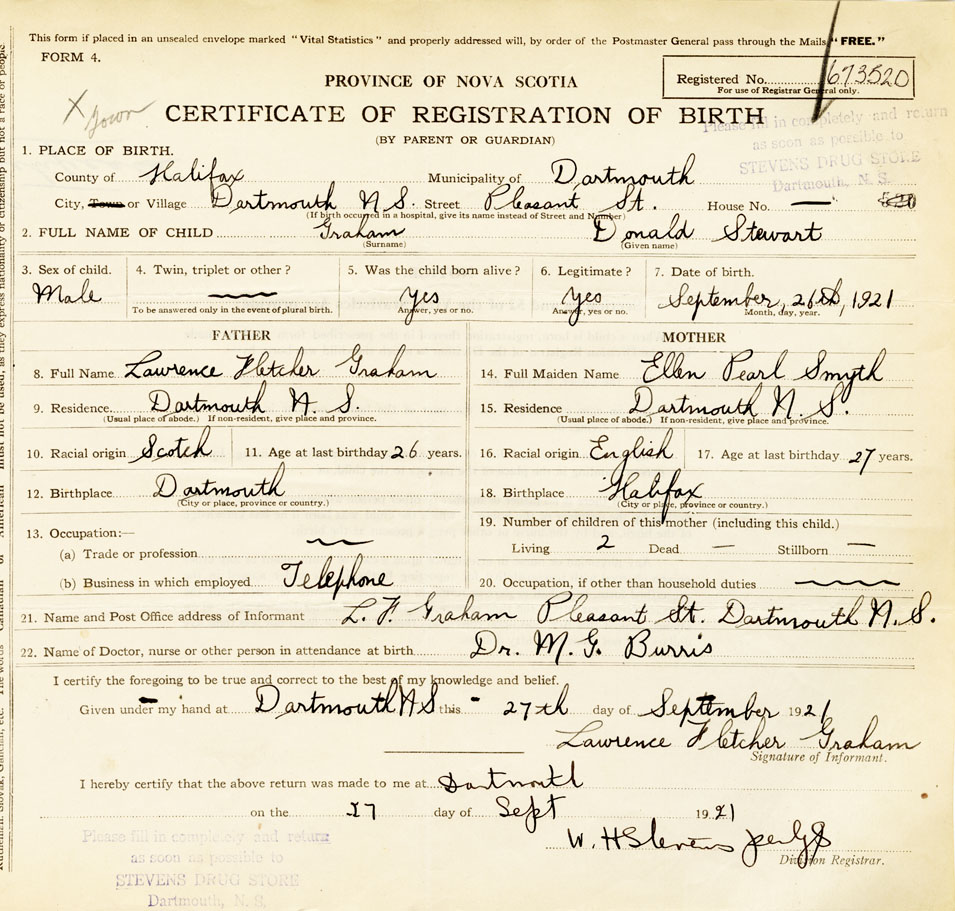 This form if placed in an unsealed envelope marked "Vital Statistics" and properly addressed will, by order of the Postmaster General pass through the Mails "FREE."
FORM 4.
Registered No. 673520
For use of Registrar General only.
PROVINCE OF NOVA SCOTIA
X Town
CERTIFICATE OF REGISTRATION OF BIRTH
(BY PARENT OR GUARDIAN)
Please fill in completely and return
as soon as possible to
STEVENS DRUG STORE
Dartmouth, N. S.
1. PLACE OF BIRTH.
County of Halifax Municipality of Dartmouth
City, Town or Village Dartmouth N.S. Street Pleasant St. House No. —
(If birth occurred in a hospital, give its name instead of Street and Number)
2. FULL NAME OF CHILD Graham Donald Stewart
(Surname) (Given name)
3. Sex of child. 4. Twin, triplet or other? 5. Was the child born alive? 6. Legitimate? 7. Date of birth.
Male — Yes Yes September, 26th, 1921
To be answered only in the event of plural birth. Answer, yes or no. Answer, yes or no. Month, day, year.
FATHER MOTHER
8. Full Name Lawrence Fletcher Graham 14. Full Maiden Name Ellen Pearl Smyth
9. Residence Dartmouth N. S. 15. Residence Dartmouth N. S.
(Usual place of abode.) If non-resident, give place and province. (Usual place of abode.) If non-resident, give place and province.
10. Racial origin Scotch 11. Age at last birthday 26 years. 16. Racial origin English 17. Age at last birthday 27 years.
12. Birthplace Dartmouth 18. Birthplace Halifax
(City or place, province or country.) (City or place, province or country.)
13. Occupation:— 19. Number of children of this mother (including this child.)
(a) Trade or profession — Living 2 Dead — Stillborn —
(b) Business in which employed Telephone 20. Occupation, if other than household duties —
21. Name and Post Office address of Informant L. F. Graham Pleasant St. Dartmouth N. S.
22. Name of Doctor, nurse or other person in attendance at birth Dr. M. G. Burris
I certify the foregoing to be true and correct to the best of my knowledge and belief.
Given under my hand at Dartmouth N S this 27th day of September 1921
Lawrence Fletcher Graham
Signature of Informant.
I hereby certify that the above return was made to me at Dartmouth
on the 27 day of Sept 1921
W. H Stevens
Division Registrar.
Please fill in completely and return
as soon as possible to
STEVENS DRUG STORE
Dartmouth, N. S.